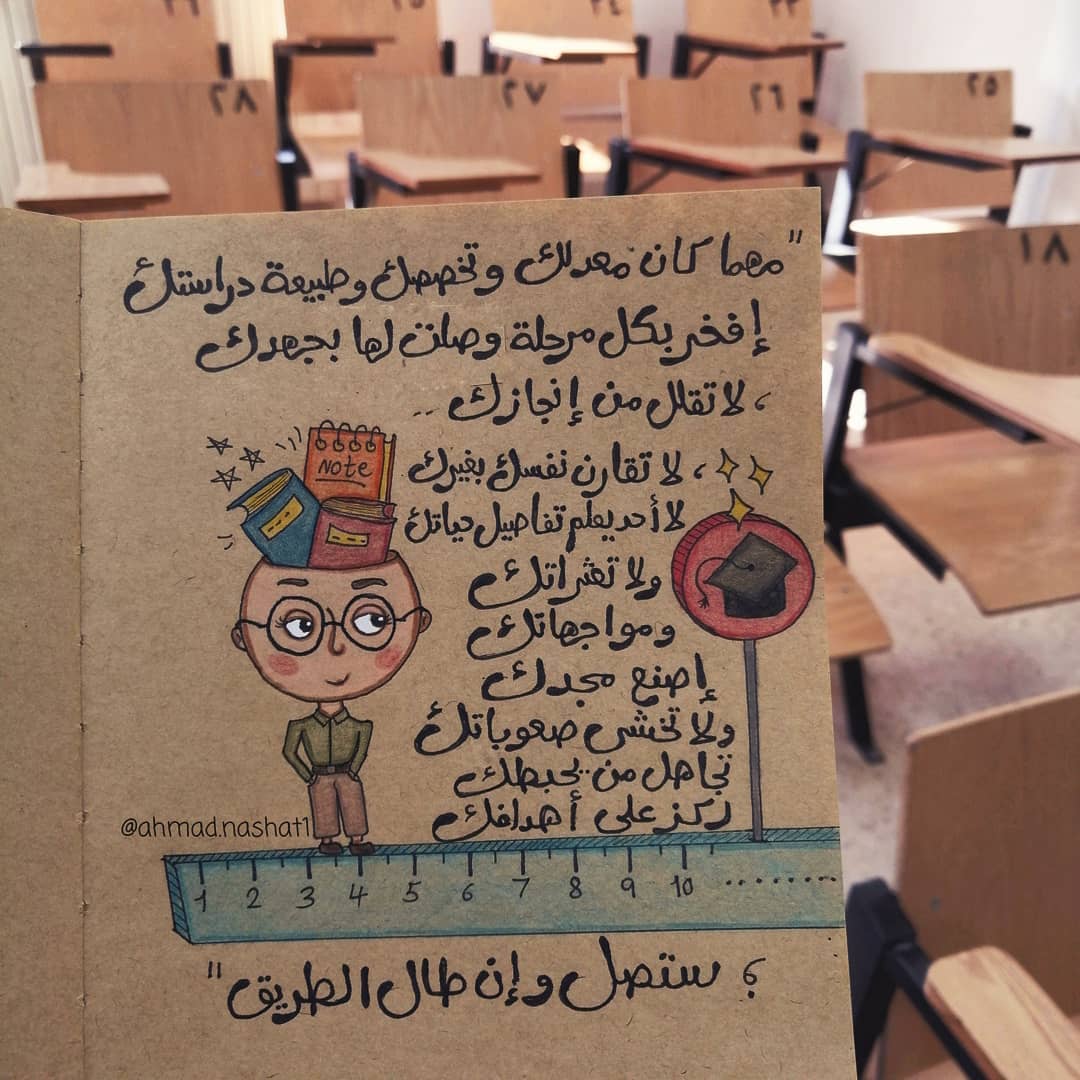 ٢٩
٢٥
٢٤
٢٣
٢٨
٢٧
٢٦
٢٥
١٨
"مهما كان معدلك وتخصصك وطبيعة دراستك
إفخر بكل مرحلة وصلت لها بجهدك
، لا تقلل من إنجازك ..
، لا تقارن نفسك بغيرك
لا أحد يعلم تفاصيل حياتك
ولا تعثراتك
ومواجهاتك
إصنع مجدك
ولا تخشى صعوباتك
تجاهل من يحبطك
ركز على أهدافك
NOTE
@ahmad.nashat1
1 2 3 4 5 6 7 8 9 10 ........
؛ ستصل وإن طال الطريق"